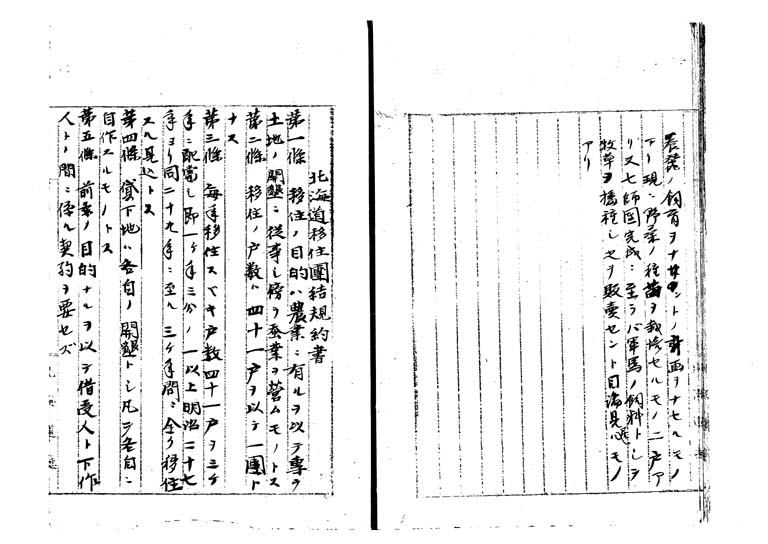 養蚕ノ飼育ヲナサントノ計画ヲナセルモノ
アリ現ニ野桑ノ種苗ヲ栽培セルモノ二戸ア
リ又七師団完成ニ至ラバ軍馬ノ飼料トシテ
牧草ヲ播種シ之ヲ販売セント目論見ルモノ
アリ
北海道移住團結規約書
第一條 移住ノ目的ハ農業ニ有ルヲ以テ専ラ
土地ノ開墾ニ従事シ傍ラ蚕業ヲ営ムモノトス
第二條 移住ノ戸数ハ四十一戸ヲ以テ一團ト
ナス
第三條 毎年移住スベキ戸数四十一戸ヲ三ケ
年ニ配當シ即一ケ年三分ノ一以上明治二十七
年ヨリ同二十九年ニ至ル三ケ年間ニ全ク移住
スル見込トス
第四條 貸下地ハ各自ノ開墾トシ凡テ各自ニ
自作スルモノトス
第五條 前条ノ目的ナルヲ以テ借受人ト下作
人トノ間ニ係ル契約ヲ要セズ